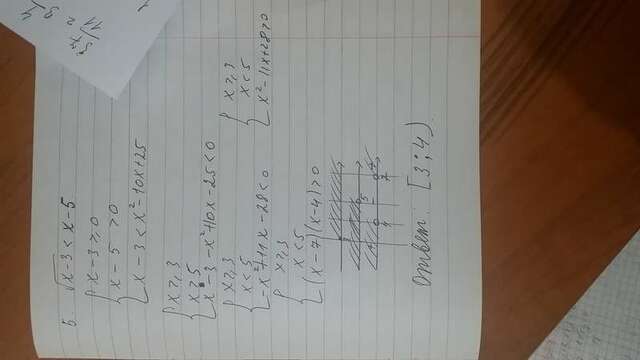 5. √x-3 < x-5
{ x-3 ≥ 0
x-5 > 0
x-3 < x²-10x+25
{ x ≥ 3
x > 5
x-3-x²+10x-25 < 0
{ x ≥ 3
x < 5
-x²+11x-28 < 0
{ x ≥ 3
x < 5
x²-11x+28 > 0
{ x ≥ 3
x < 5
(x-7)(x-4) > 0
Ответ: [3; 4)